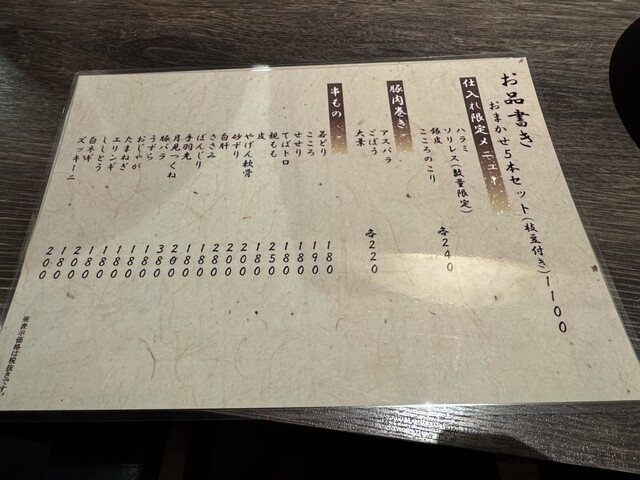 お品書き
おまかせ5本セット(枝豆付き)1100
仕入れ限定メニュー
ハラミ
ソリレス(数量限定)
銀皮
こころのこり
各240
豚肉巻き
アスパラ
ごぼう
大葉
各220
串もの
若どり 180
こころ 190
せせり 180
てばトロ 180
親もも 250
皮 180
やげん軟骨 200
砂ずり 200
白肝 280
ささみ 180
ぼんじり 180
手羽先 200
月見つくね 380
豚バラ 180
うずら 180
おじゃが 180
たまねぎ 180
エリンギ 180
ししとう 200
白ネギ 180
ズッキーニ 200
※表示価格は税抜きです。